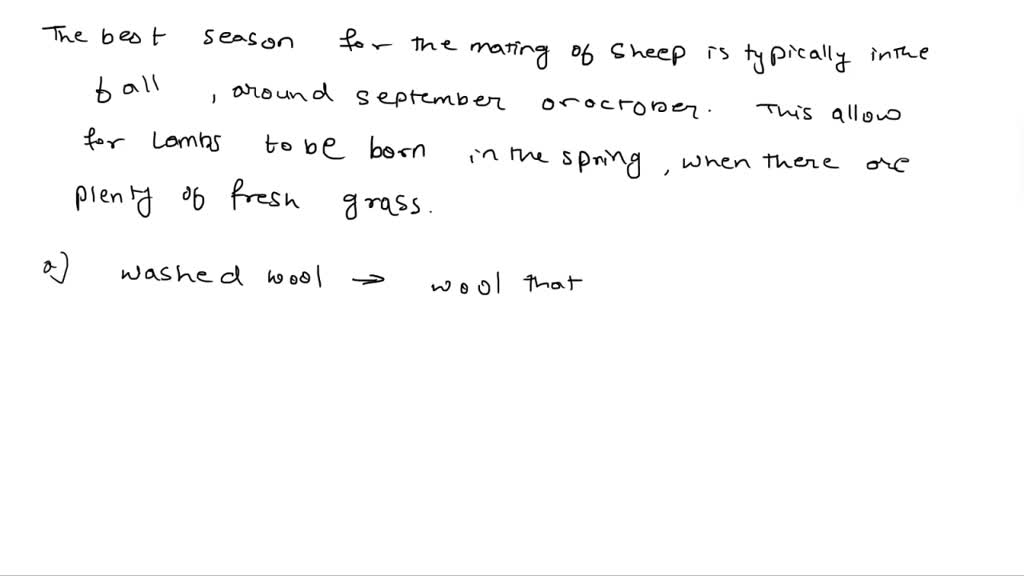 The best season for the mating of sheep is typically in the
fall, around september or october. This allow
for Lambs to be born in the spring, when there are
plenty of fresh grass.
a) washed wool → wool that